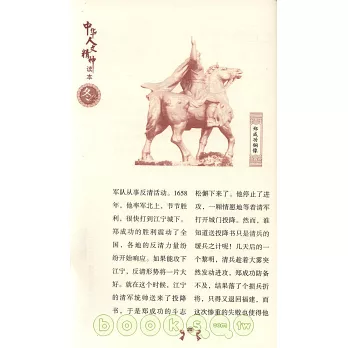 中华人文精神
读本
冬
郑成功铜像
军队从事反清活动。1658
年，他率军北上，节节胜
利，很快打到江宁城下。
郑成功的胜利震动了全
国，各地的反清力量纷
纷开始响应。如果能攻下
江宁，反清形势将一片大
好。就在这个时候，江宁
的清军统帅送来了投降
书，于是郑成功的斗志
松懈下来了。他停止了进
攻，一颗情愿地等着清军
打开城门投降。然而，谁
知道送投降书只是清兵的
缓兵之计呢！几天后的一
个黎明，清兵趁着大雾突
然发动进攻，郑成功防备
不及，结果落了个损兵折
将，只得又退回福建。而
这次惨重的失败也使得他
books.com.tw